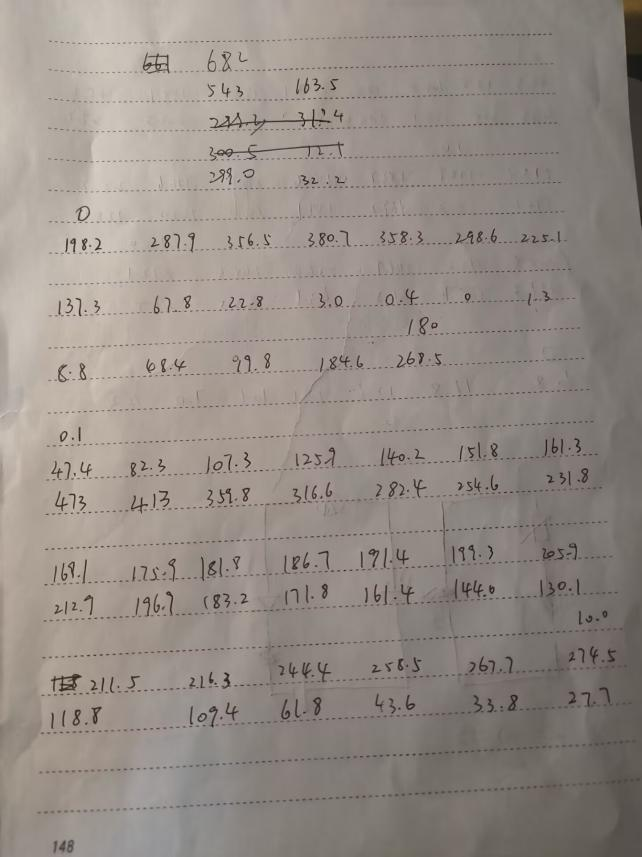 682
543 163.5
300.5 12.1
299.0 32.2
0
198.2 287.9 356.5 380.7 358.3 298.6 225.1
137.3 67.8 22.8 3.0 0.4 0 1.3
180
8.8 68.4 99.8 184.6 268.5
0.1
47.4 82.3 107.3 125.9 140.2 151.8 161.3
473 413 359.8 316.6 282.4 254.6 231.8
168.1 175.9 181.8 186.7 191.4 199.3 205.9
212.9 196.9 183.2 171.8 161.4 144.0 130.1
10.0
211.5 216.3 244.4 258.5 267.7 274.5
118.8 109.4 61.8 43.6 33.8 27.7
148